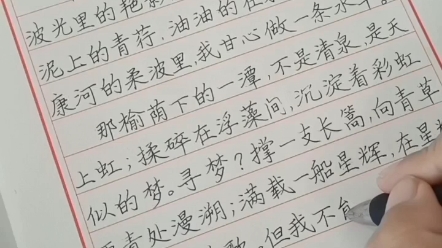 波光里的艳影
泥上的青荇,油油的在
康河的柔波里,我甘心做一条水草。
那榆荫下的一潭,不是清泉,是天
上虹;揉碎在浮藻间,沉淀着彩虹
似的梦。寻梦?撑一支长篙,向青草
青处漫溯;满载一船星辉,在星
歌。但我不能